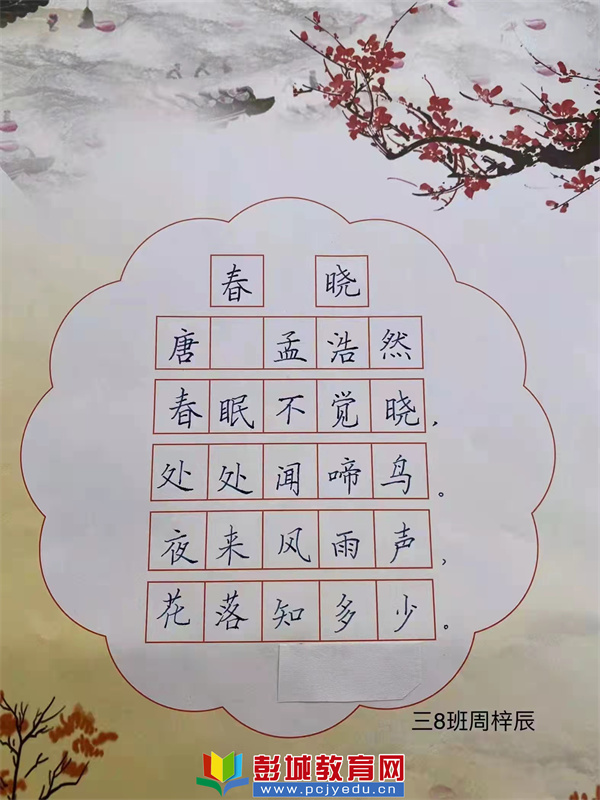 春 晓
唐 孟浩然
春眠不觉晓，
处处闻啼鸟。
夜来风雨声，
花落知多少。
三8班周梓辰
彭城教育网
www.pcjyedu.cn